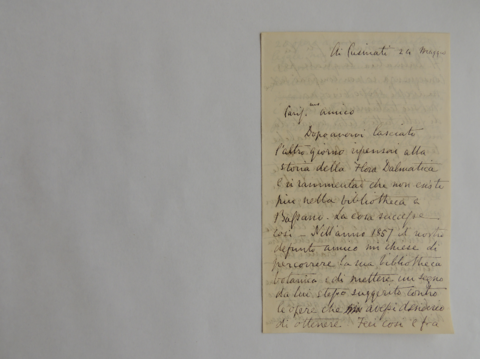 24 Maggio
amico
Dopo avervi lasciato
l'altro giorno ripensai alla
storia della Flora Dalmatica
e mi rammentai che non esiste
più nella bibliotheca a
Bassano. La cosa successe
così – Nell'anno 1857 il nostro
defunto amico mi chiese di
percorrere la sua bibliotheca
botanica e di mettere un segno
da lui stesso suggerito contro
le opere che avessi desiderio
di ottenere. Feci così e fra